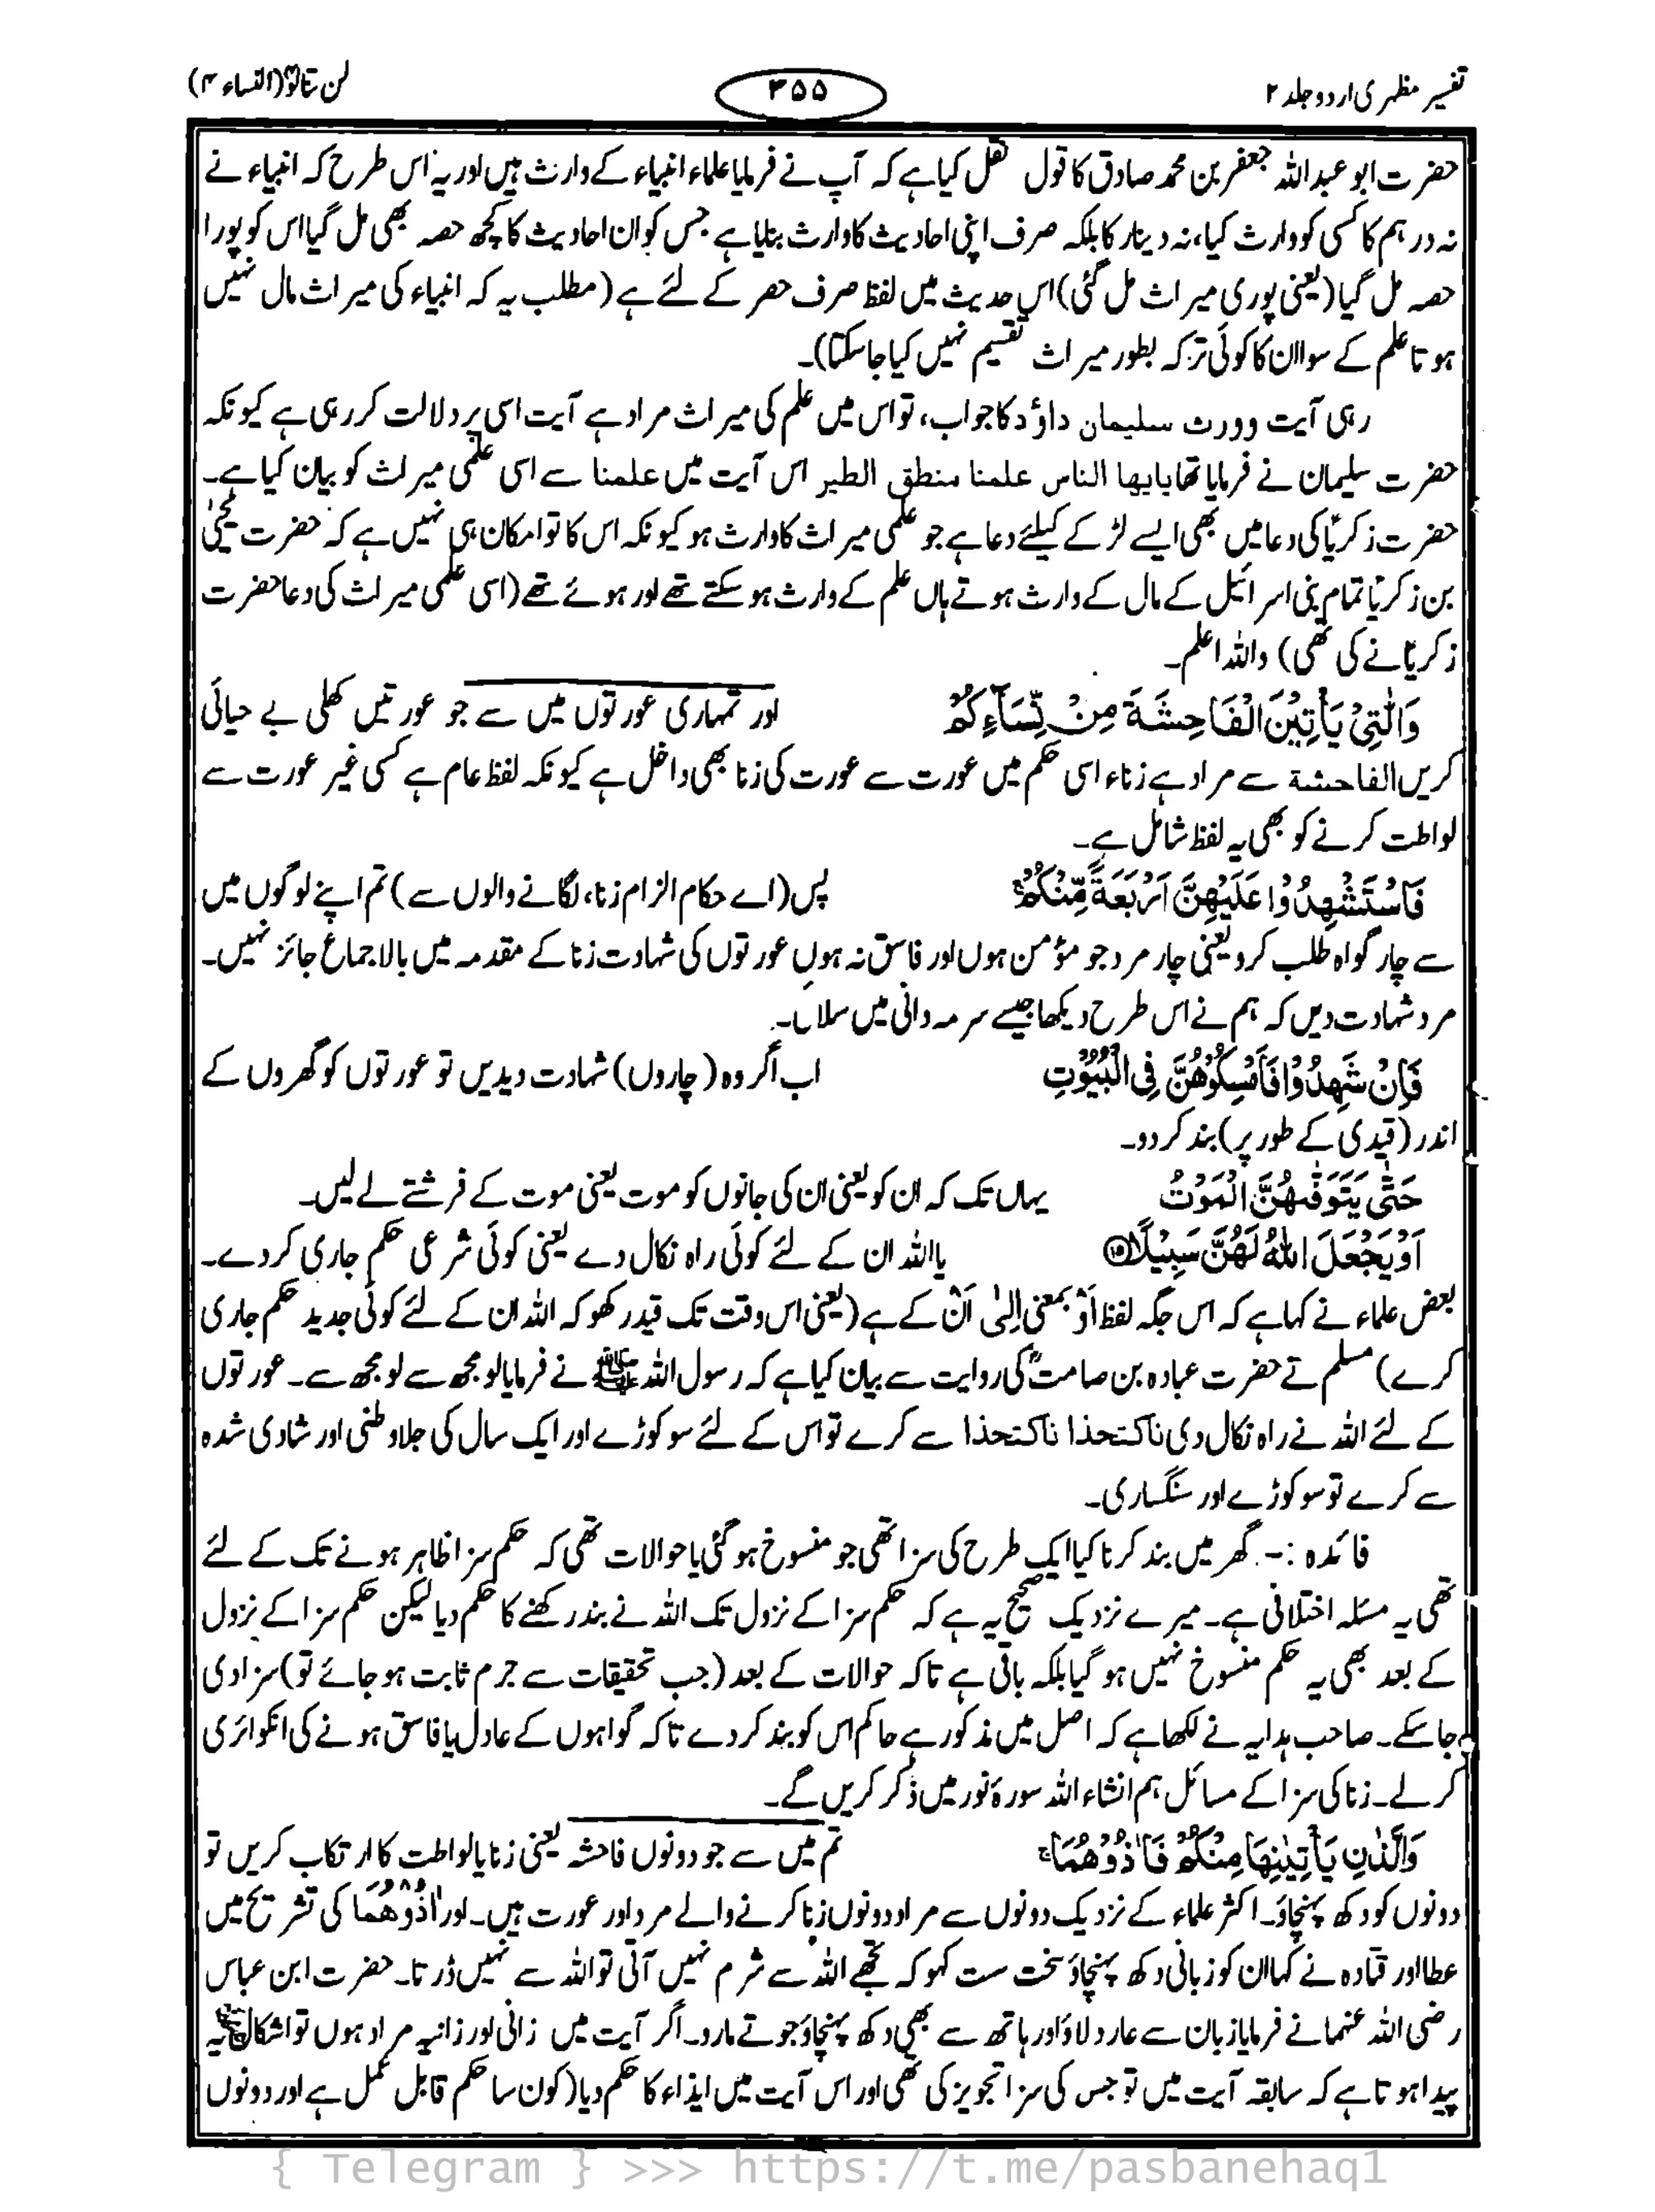 تفسیر مظہری اردو جلد ۲
۳۵۵
لن تنالوا (النساء ۴)
حضرت ابو عبداللہ جعفر بن محمد صادق کا قول نقل کیا ہے کہ آپ نے فرمایا علماء انبیاء کے وارث ہیں اور یہ اس طرح کہ انبیاء نے
نہ درہم کا کسی کو وارث کیا، نہ دینار کا بلکہ صرف اپنی احادیث کا وارث بنایا ہے جس کو ان احادیث کا کچھ حصہ بھی مل گیا اس کو پورا
حصہ مل گیا (یعنی پوری میراث مل گئی) اس حدیث میں لفظ صرف حصر کے لئے ہے (مطلب یہ کہ انبیاء کی میراث مال نہیں
ہوتا علم کے سوا ان کا کوئی ترکہ بطور میراث تقسیم نہیں کیا جا سکتا)۔
رہی آیت وورث سلیمان داؤد کا جواب، تو اس میں علم کی میراث مراد ہے آیت اسی پر دلالت کر رہی ہے کیونکہ
حضرت سلیمان نے فرمایا تھا یایھا الناس علمنا منطق الطیر اس آیت میں علمنا سے اسی علمی میراث کو بیان کیا ہے۔
حضرت زکریاؑ کی دعا میں بھی ایسے لڑکے کیلئے دعا ہے جو علمی میراث کا وارث ہو کیونکہ اس کا تو امکان ہی نہیں ہے کہ حضرت یحیٰی
بن زکریاؑ تمام بنی اسرائیل کے مال کے وارث ہوتے ہاں علم کے وارث ہو سکتے تھے اور ہوئے تھے (اسی علمی میراث کی دعا حضرت
زکریاؑ نے کی تھی) واللہ اعلم۔
وَالّٰتِیْ یَاْتِیْنَ الْفَاحِشَۃَ مِنْ نِّسَآءِکُمْ اور تمہاری عورتوں میں سے جو عورتیں کھلی بے حیائی
کریں الفاحشة سے مراد ہے زناء اسی حکم میں عورت سے عورت کی زنا بھی داخل ہے کیونکہ لفظ عام ہے کسی غیر عورت سے
لواطت کرنے کو بھی یہ لفظ شامل ہے۔
فَاسْتَشْهِدُوْا عَلَیْهِنَّ اَرْبَعَةً مِّنْکُمْ پس (اے حکام الزام زنا، لگانے والوں سے) تم اپنے لوگوں میں
سے چار گواہ طلب کرو یعنی چار مرد جو مؤمن ہوں اور فاسق نہ ہوں عورتوں کی شہادت زنا کے مقدمہ میں بالاجماع جائز نہیں۔
مرد شہادت دیں کہ ہم نے اس طرح دیکھا جیسے سرمہ دانی میں سلائی۔
فَاِنْ شَهِدُوْا فَاَمْسِکُوْهُنَّ فِی الْبُیُوْتِ اب اگر وہ (چاروں) شہادت دیدیں تو عورتوں کو گھروں کے
اندر (قیدی کے طور پر) بند کر دو۔
حَتّٰی یَتَوَفّٰهُنَّ الْمَوْتُ یہاں تک کہ ان کو یعنی ان کی جانوں کو موت یعنی موت کے فرشتے لے لیں۔
اَوْ یَجْعَلَ اللّٰهُ لَهُنَّ سَبِیْلًا ۝۱۵ یا اللہ ان کے لئے کوئی راہ نکال دے یعنی کوئی شرعی حکم جاری کر دے۔
بعض علماء نے کہا ہے کہ اس جگہ لفظ اَوْ بمعنی اِلیٰ اَنْ کے ہے (یعنی اس وقت تک قید رکھو کہ اللہ ان کے لئے کوئی جدید حکم جاری
کرے) مسلم نے حضرت عبادہ بن صامتؓ کی روایت سے بیان کیا ہے کہ رسول اللہ ﷺ نے فرمایا لو مجھ سے لو مجھ سے۔ عورتوں
کے لئے اللہ نے راہ نکال دی ناکتخدا ناکتخدا سے کرے تو اس کے لئے سو کوڑے اور ایک سال کی جلاوطنی اور شادی شدہ
سے کرے تو سو کوڑے اور سنگساری۔
فائدہ :-. گھر میں بند کرنا کیا ایک طرح کی سزا تھی جو منسوخ ہو گئی یا حوالات تھی کہ حکم سزا ظاہر ہونے تک کے لئے
تھی یہ مسئلہ اختلافی ہے۔ میرے نزدیک صحیح یہ ہے کہ حکم سزا کے نزول تک اللہ نے بند رکھنے کا حکم دیا لیکن حکم سزا کے نزول
کے بعد بھی یہ حکم منسوخ نہیں ہو گیا بلکہ باقی ہے تاکہ حوالات کے بعد (جب تحقیقات سے جرم ثابت ہو جائے تو) سزا دی
جا سکے۔ صاحب ہدایہ نے لکھا ہے کہ اصل میں مذکور ہے حاکم اس کو بند کر دے تاکہ گواہوں کے عادل یا فاسق ہونے کی انکوائری
کر لے۔ زنا کی سزا کے مسائل ہم انشاء اللہ سورۂ نور میں ذکر کریں گے۔
وَالَّذٰنِ یَاْتِیٰنِهَا مِنْکُمْ فَاٰذُوْهُمَا تم میں سے جو دونوں فاحشہ یعنی زنا یا لواطت کا ارتکاب کریں تو
دونوں کو دکھ پہنچاؤ۔ اکثر علماء کے نزدیک دونوں سے مراد دونوں زنا کرنے والے مرد اور عورت ہیں۔ اور اٰذُوْهُمَا کی تشریح میں
عطا اور قتادہ نے کہا ان کو زبانی دکھ پہنچاؤ سخت ست کہو کہ تجھے اللہ سے شرم نہیں آئی تو اللہ سے نہیں ڈرتا۔ حضرت ابن عباس
رضی اللہ عنہما نے فرمایا زبان سے عار دلاؤ اور ہاتھ سے بھی دکھ پہنچاؤ جوتے مارو۔ اگر آیت میں زانی اور زانیہ مراد ہوں تو اشکال یہ
پیدا ہوتا ہے کہ سابقہ آیت میں تو حبس کی سزا تجویز کی تھی اور اس آیت میں ایذاء کا حکم دیا (کون سا حکم قابل عمل ہے اور دونوں
{ Telegram } >>> https://t.me/pasbanehaq1